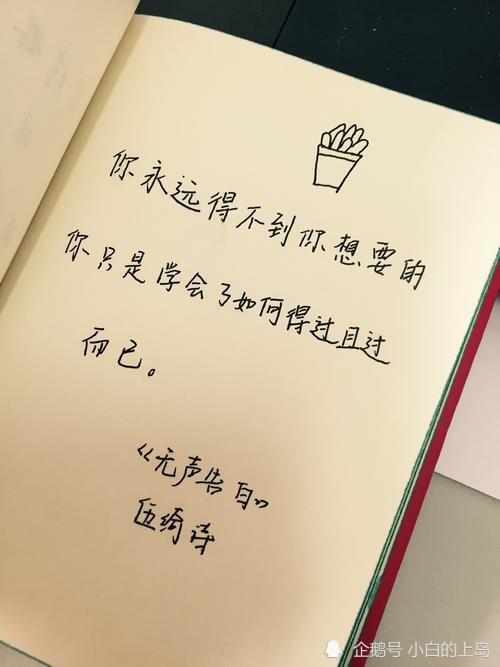 你永远得不到你想要的
你只是学会了如何得过且过
而已。
《无声告白》
伍绮诗
企鹅号 小白的上岛